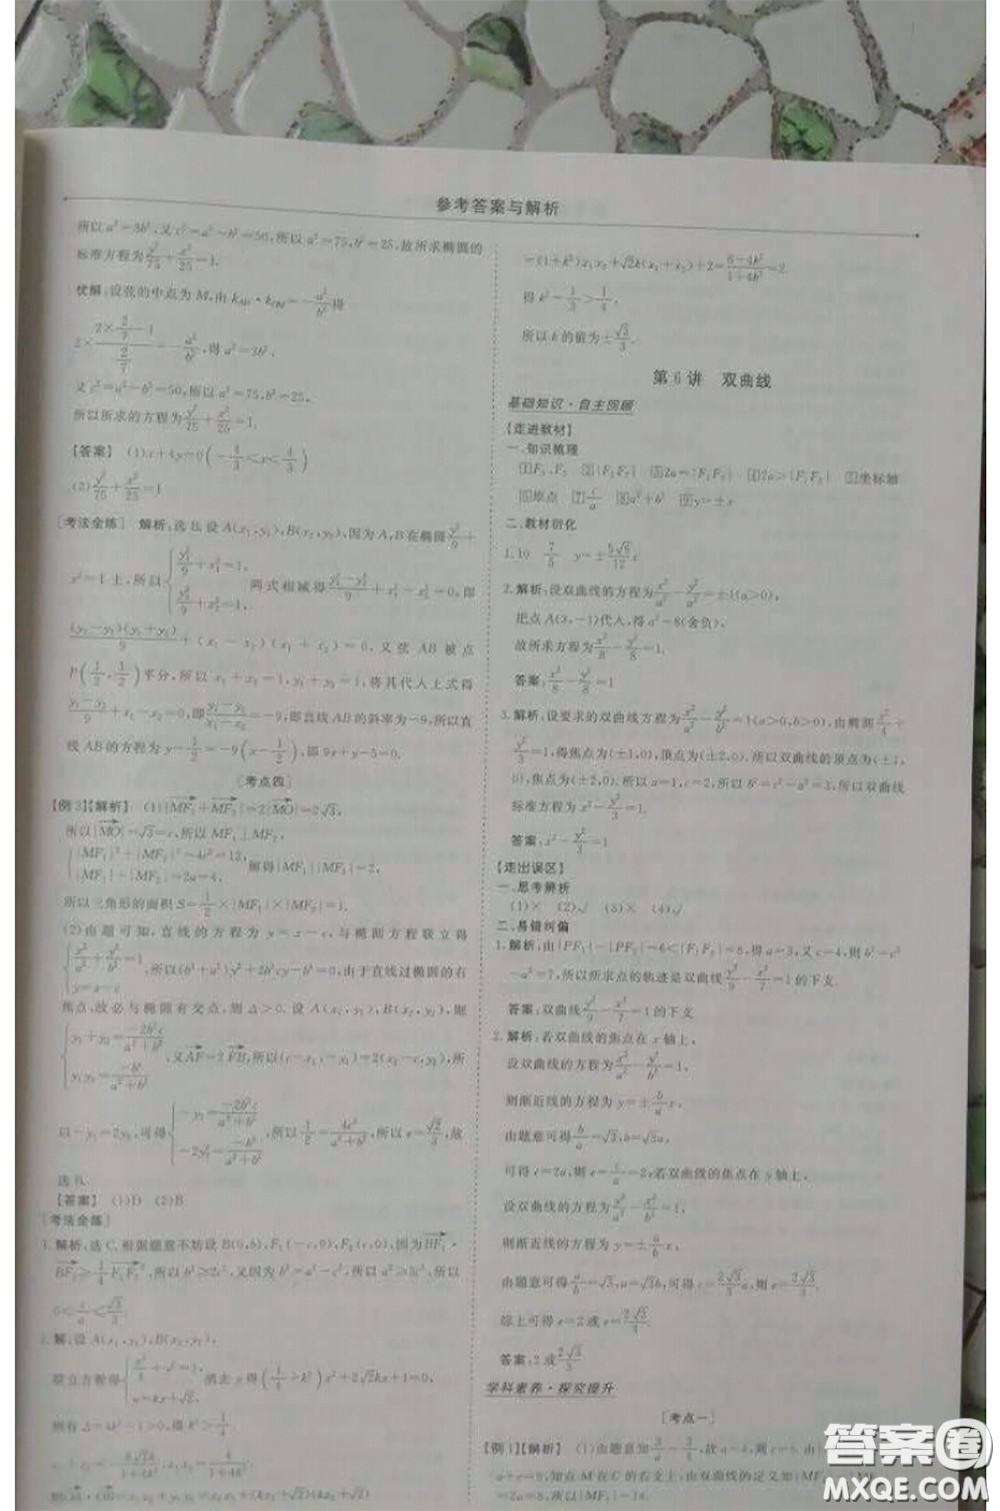 参考答案与解析
所以 a²=3b², 又 c²=a²-b²=50, 所以 a²=75, b²=25, 故所求椭圆的
标准方程为 y²/75+x²/25=1.
优解: 设弦的中点为 M, 由
得 a²=3b².
又 c²=a²-b²=50, 所以 a²=75, b²=25,
所以所求的方程为 y²/75+x²/25=1.
【答案】 (1) x+4y=0(-4/3<x<4/3)
(2) y²/75+x²/25=1
[考法全练] 解析: 选 设 A(x₁,y₁), B(x₂,y₂), 因为 A,B 在椭圆 y²/9+
x²=1 上, 所以 {y₁²/9+x₁²=1, y₂²/9+x₂²=1, 两式相减得 (y₁²-y₂²)/9+x₁²-x₂²=0, 即
(y₁-y₂)(y₁+y₂)/9+(x₁-x₂)(x₁+x₂)=0, 又弦 AB 被点
P(1/2,1/2) 平分, 所以 x₁+x₂=1, y₁+y₂=1, 将其代入上式得
(y₁-y₂)/9+x₁-x₂=0, 即 (y₁-y₂)/(x₁-x₂)=-9, 即直线 AB 的斜率为-9, 所以直
线 AB 的方程为 y-1/2=-9(x-1/2), 即 9x+y-5=0.
[考点四]
【例3】【解析】 (1) |MF₁+MF₂|=2|MO|=2√3,
所以 |MO|=√3=c, 所以 MF₁⊥MF₂,
{|MF₁|²+|MF₂|²=4c²=12, |MF₁|+|MF₂|=2a=4, 解得 |MF₁||MF₂|
所以三角形的面积 S=1/2×|MF₁|×|MF₂|=1.
(2) 由题可知, 直线的方程为 y=x-c, 与椭圆方程联立得
{x²/a²+y²/b²=1, y=x-c 所以 (b²+a²)y²+2b²cy-b⁴=0, 由于直线过椭圆的右
焦点, 故必与椭圆有交点, 则 Δ>0. 设 A(x₁,y₁), B(x₂,y₂), 则
{y₁+y₂=-2b²c/(a²+b²), y₁y₂=-b⁴/(a²+b²), 又 AF=2FB, 所以 (c-x₁,-y₁)=2(x₂-c,y₂),
以 -y₁=2y₂, 可得 {-y₂=-2b²c/(a²+b²), -2y₂²=-b⁴/(a²+b²), 所以 1/2=4c²/(a²+b²), 所以 e=√2/3, 故
选 B.
【答案】 (1)D (2)B
[考法全练]
1. 解析: 选 C. 根据题意不妨设 B(0,b), F₁(-c,0), F₂(c,0), 因为 BF₁·
BF₂≥1/4F₁F₂², 所以 b²≥2c², 又因为 b²=a²-c², 所以 a²≥3c², 所以
0<c/a≤√3/3.
2. 解: 设 A(x₁,y₁), B(x₂,y₂),
联立方程得 {x²/4+y²=1, y=kx+√2, 消去 y 得 (1/4+k²)x²+2√2kx+1=0,
则有 Δ=4k²-1>0,
=(1+k²)x₁x₂+√2k(x₁+x₂)+2=(6-4k²)/(1+4k²)=2.
得 k²=1/3>1/4,
所以 k 的值为 ±√3/3.
第6讲 双曲线
基础知识·自主回顾
【走进教材】
一、知识梳理
①F₁,F₂ ②|F₁F₂| ③2a<|F₁F₂| ④2a>|F₁F₂| ⑤坐标轴
⑥原点 ⑦c/a ⑧a²+b² ⑨y=±x
二、教材衍化
1. 10 7/5 y=±5√6/12x
2. 解析: 设双曲线的方程为 x²/a²-y²/a²=±1(a>0),
把点 A(3,-1) 代入, 得 a²=8(舍负),
故所求方程为 x²/8-y²/8=1.
答案: x²/8-y²/8=1
3. 解析: 设要求的双曲线方程为 x²/a²-y²/b²=1(a>0,b>0), 由椭圆 x²/4+
y²/3=1, 得焦点为 (±1,0), 顶点为 (±2,0). 所以双曲线的顶点为 (±1,
0), 焦点为 (±2,0). 所以 a=1, c=2, 所以 b²=c²-a²=3, 所以双曲线
标准方程为 x²-y²/3=1.
答案: x²-y²/3=1
【走出误区】
一、思考辨析
(1)× (2)√ (3)× (4)√
二、易错纠偏
1. 解析: 由 |PF₁|-|PF₂|=6<|F₁F₂|=8, 得 a=3, 又 c=4, 则 b²=c²
-a²=7, 所以所求点的轨迹是双曲线 y²/9-x²/7=1 的下支.
答案: 双曲线 y²/9-x²/7=1 的下支
2. 解析: 若双曲线的焦点在 x 轴上,
设双曲线的方程为 x²/a²-y²/b²=1,
则渐近线的方程为 y=±b/a x,
由题意可得 b/a=√3, b=√3a,
可得 c=2a, 则 e=c/a=2; 若双曲线的焦点在 y 轴上,
设双曲线的方程为 y²/a²-x²/b²=1,
则渐近线的方程为 y=±a/b x,
由题意可得 a/b=√3, a=√3b, 可得 c=2√3/3a, 则 e=2√3/3.
综上可得 e=2 或 e=2√3/3.
答案: 2 或 2√3/3
学科素养·探究提升
[考点一]
【例1】【解析】 (1) 由题意知
a+c=0, 知点 M 在 C 的右支上, 由双曲线的定义知
答案圈
MXQE.COM